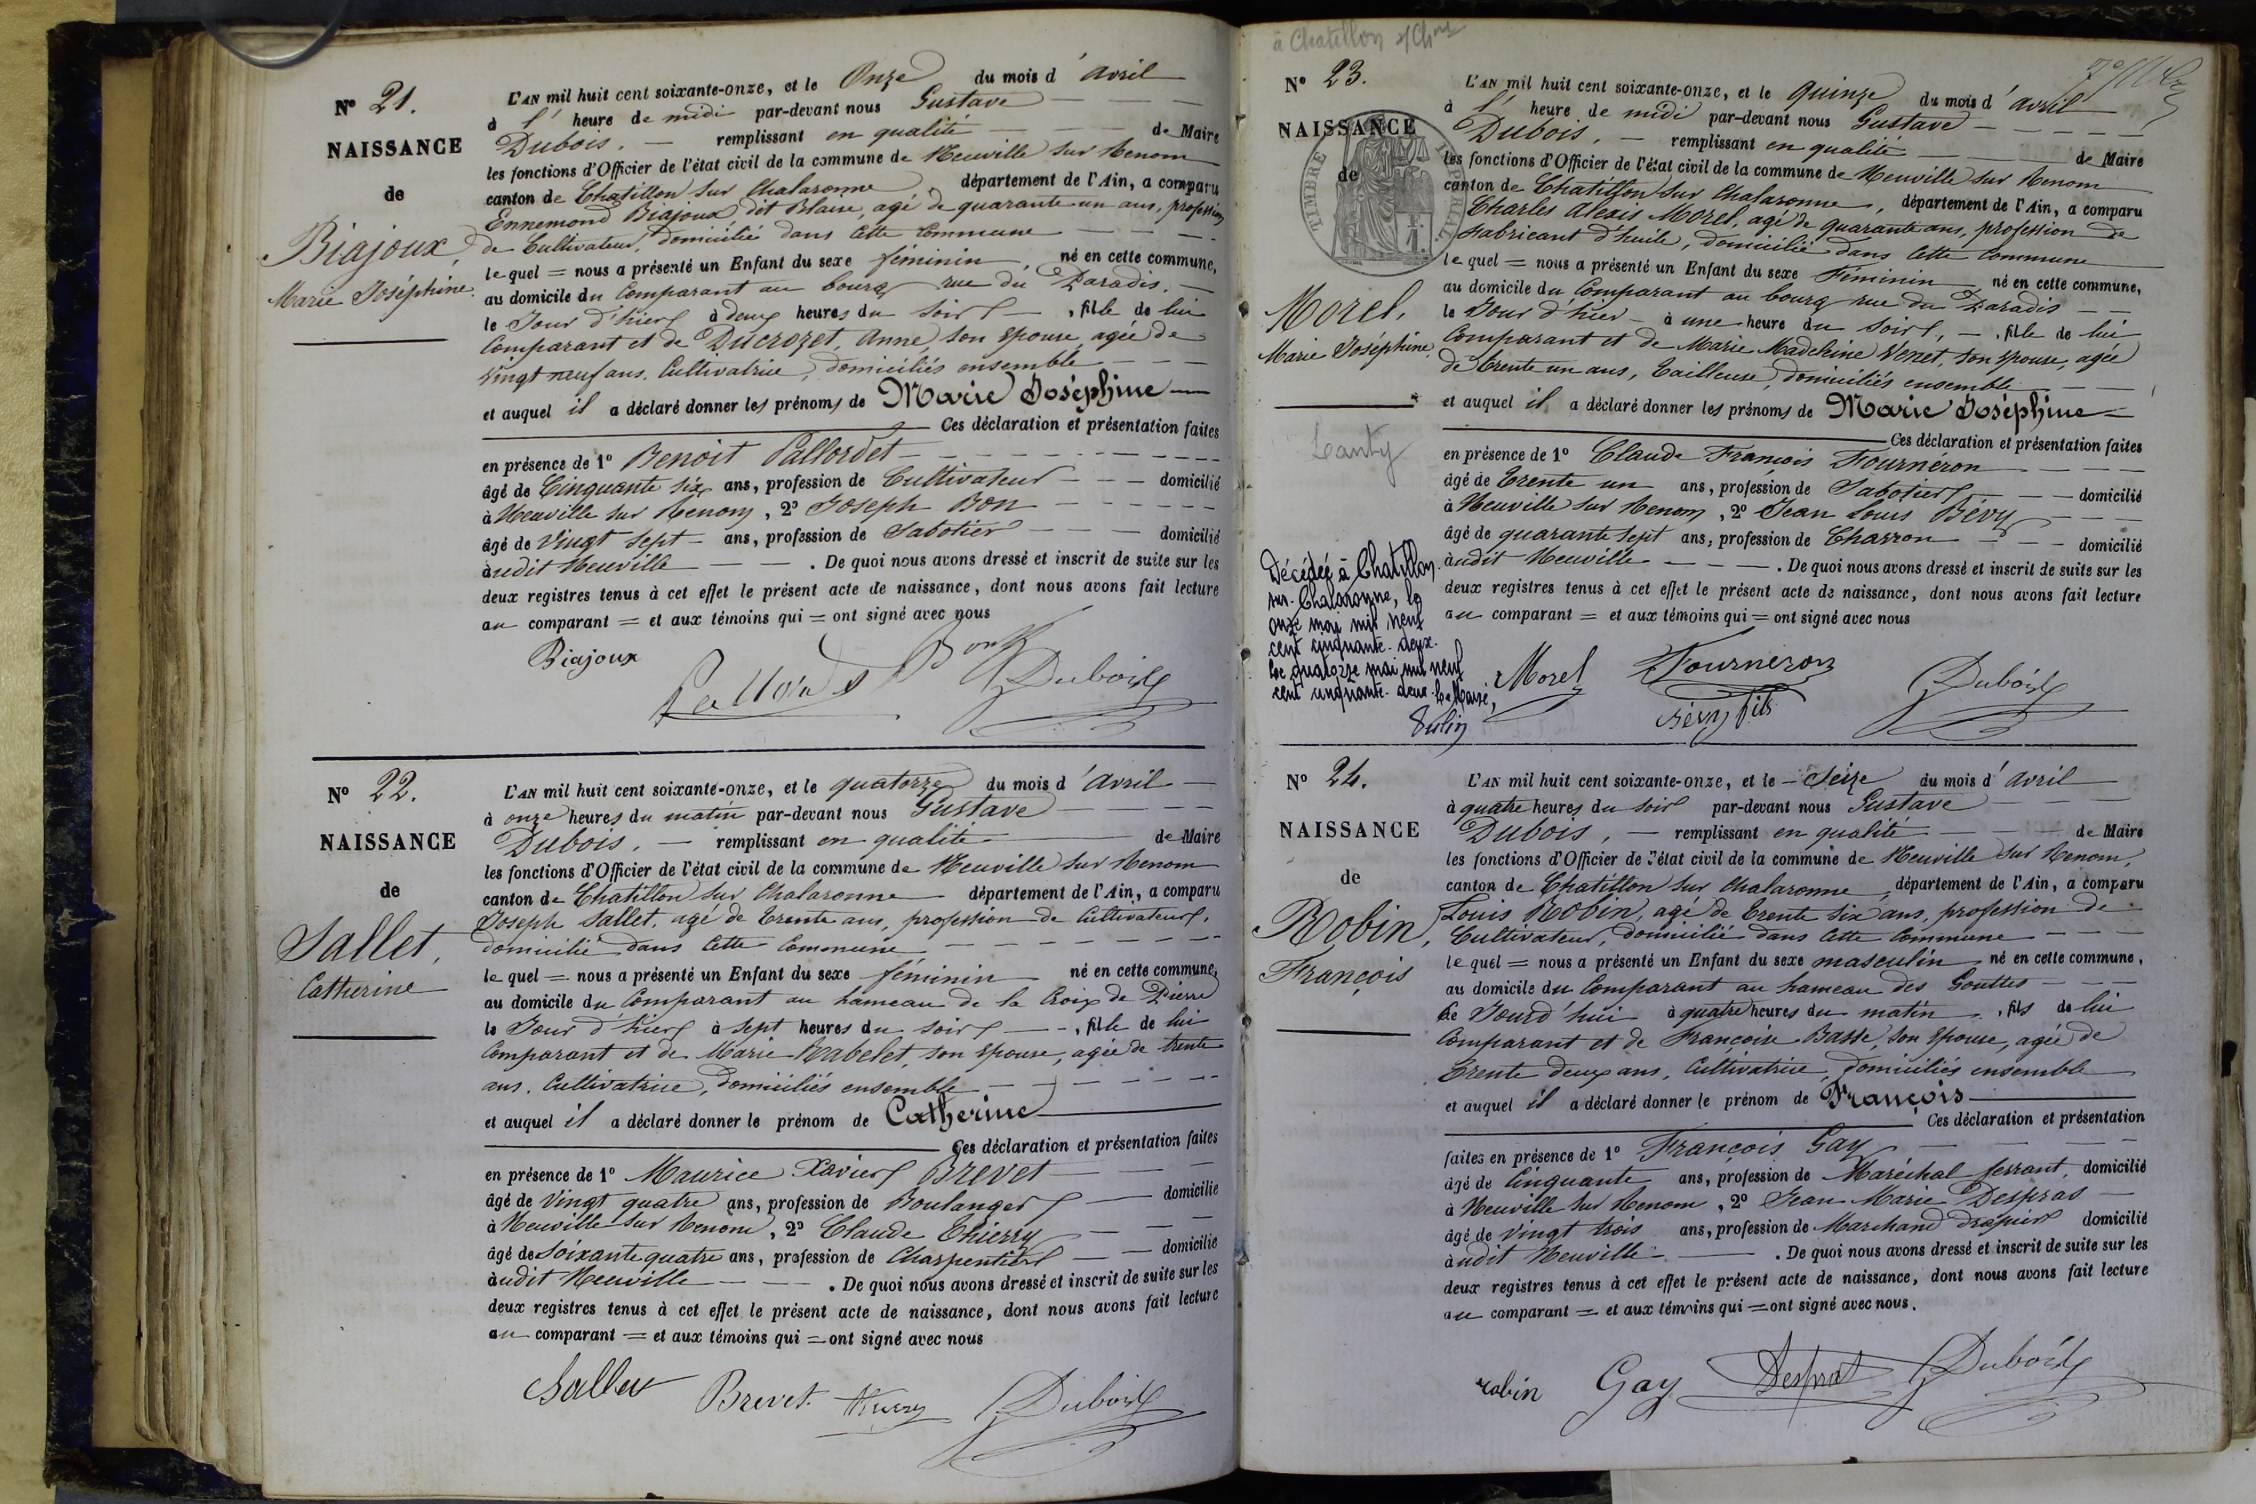 N° 21.
NAISSANCE
de
Biajoux,
Marie Joséphine.
L'AN mil huit cent soixante-onze, et le Onze du mois d'avril
à l'heure de midi par-devant nous Gustave
Dubois. remplissant en qualité de Maire
les fonctions d'Officier de l'état civil de la commune de Neuville sur Renom
canton de Chatillon sur Chalaronne, département de l'Ain, a comparu
Ennemond Biajoux dit Blaise, agé de quarante un ans, profession
de Cultivateur, domicilié dans cette commune
le quel = nous a présenté un Enfant du sexe féminin, né en cette commune,
au domicile du Comparant au bourg rue du Paradis.
le Jour d'hier à deux heures du soir, fille de lui
Comparant et de Ducrozet, Anne son épouse, agée de
vingt neuf ans. Cultivatrice, domiciliés ensemble
et auquel il a déclaré donner les prénoms de Marie Joséphine
Ces déclaration et présentation faites
en présence de 1° Benoit Pallordet
âgé de Cinquante six ans, profession de Cultivateur domicilié
à Neuville sur Renom, 2° Joseph Bon
âgé de Vingt sept ans, profession de Sabotier domicilié
àudit Neuville. De quoi nous avons dressé et inscrit de suite sur les
deux registres tenus à cet effet le présent acte de naissance, dont nous avons fait lecture
au comparant = et aux témoins qui = ont signé avec nous
Biajoux Bon Dubois
N° 22.
NAISSANCE
de
Sallet,
Catherine
L'AN mil huit cent soixante-onze, et le quatorze du mois d'avril
à onze heures du matin par-devant nous Gustave
Dubois. remplissant en qualité de Maire
les fonctions d'Officier de l'état civil de la commune de Neuville sur Renom
canton de Chatillon sur Chalaronne département de l'Ain, a comparu
Joseph Sallet, agé de trente ans, profession de Cultivateur,
domicilié dans cette commune
le quel = nous a présenté un Enfant du sexe féminin né en cette commune,
au domicile du Comparant au hameau de la Croix de Pierre
le Jour d'hier à sept heures du soir, fille de lui
Comparant et de Marie Rabelet, son épouse, agée de trente
ans. Cultivatrice, domiciliés ensemble
et auquel il a déclaré donner le prénom de Catherine
Ces déclaration et présentation faites
en présence de 1° Maurice Xavier Brevet
âgé de Vingt quatre ans, profession de Boulanger domicilié
à Neuville sur Renom, 2° Claude Thierry
âgé de Soixante quatre ans, profession de Charpentier domicilié
àudit Neuville. De quoi nous avons dressé et inscrit de suite sur les
deux registres tenus à cet effet le présent acte de naissance, dont nous avons fait lecture
au comparant = et aux témoins qui = ont signé avec nous
Sallet Brevet. Thierry Dubois
à Chatillon s/Chne
N° 23.
NAISSANCE
de
TIMBRE IMPERIAL
Morel,
Marie Joséphine
Lanty
Décédée à Chatillon
sur-Chalaronne, le
onze mai mil neuf
cent cinquante-deux.
Le quatorze mai mil neuf
cent cinquante-deux. Le Maire,
L'AN mil huit cent soixante-onze, et le quinze du mois d'avril
à l'heure de midi par-devant nous Gustave
Dubois. remplissant en qualité de Maire
les fonctions d'Officier de l'état civil de la commune de Neuville sur Renom
canton de Chatillon sur Chalaronne, département de l'Ain, a comparu
Charles Alexis Morel, agé de quarante ans, profession de
fabricant d'huile, domicilié dans cette commune
le quel = nous a présenté un Enfant du sexe Féminin né en cette commune,
au domicile du Comparant au bourg rue du Paradis
le Jour d'hier à une heure du soir, fille de lui
Comparant et de Marie Madeleine Venet, son épouse, agée
de trente un ans, Tailleuse, domiciliés ensemble
et auquel il a déclaré donner les prénoms de Marie Joséphine
Ces déclaration et présentation faites
en présence de 1° Claude François Fournéron
âgé de trente un ans, profession de Sabotier domicilié
à Neuville sur Renom, 2° Jean Louis Bévy
âgé de quarante sept ans, profession de Charron domicilié
àudit Neuville. De quoi nous avons dressé et inscrit de suite sur les
deux registres tenus à cet effet le présent acte de naissance, dont nous avons fait lecture
au comparant = et aux témoins qui = ont signé avec nous
Morel Fourneron Dubois
Bévy fils
N° 24.
NAISSANCE
de
Robin,
François
L'AN mil huit cent soixante-onze, et le Seize du mois d'avril
à quatre heures du soir par-devant nous Gustave
Dubois, remplissant en qualité de Maire
les fonctions d'Officier de l'état civil de la commune de Neuville sur Renom,
canton de Chatillon sur Chalaronne, département de l'Ain, a comparu
Louis Robin, agé de trente six ans, profession de
Cultivateur, domicilié dans cette commune
le quel = nous a présenté un Enfant du sexe masculin né en cette commune,
au domicile du Comparant au hameau des Gouttes
le Jourd'hui à quatre heures du matin, fils de lui
Comparant et de Françoise Basse, son épouse, agée de
trente deux ans, Cultivatrice, domiciliés ensemble
et auquel il a déclaré donner le prénom de François
Ces déclaration et présentation
faites en présence de 1° François Gay
âgé de Cinquante ans, profession de Maréchal ferrant, domicilié
à Neuville sur Renom, 2° Jean Marie Despras
âgé de vingt trois ans, profession de Marchand drapier domicilié
àudit Neuville. De quoi nous avons dressé et inscrit de suite sur les
deux registres tenus à cet effet le présent acte de naissance, dont nous avons fait lecture
au comparant = et aux témoins qui = ont signé avec nous.
robin Gay Despras Dubois